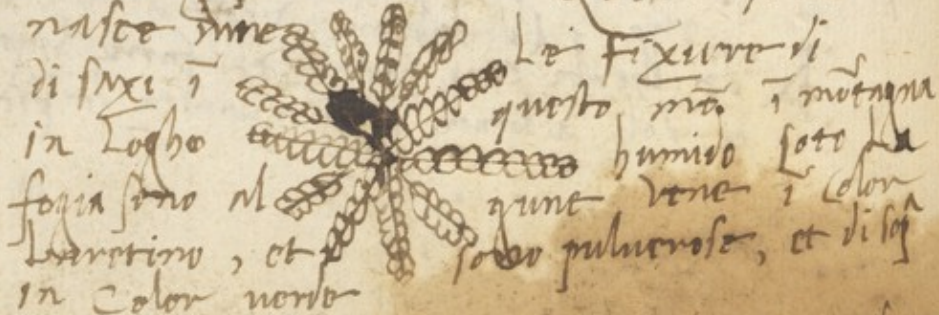 nasce Le Fixure di
di saxi ī questo ī mōtagna
in Logho humido soto La
fogia sono al gune vene ī Color
baretino, et sono pulverose, et di
in Color verde